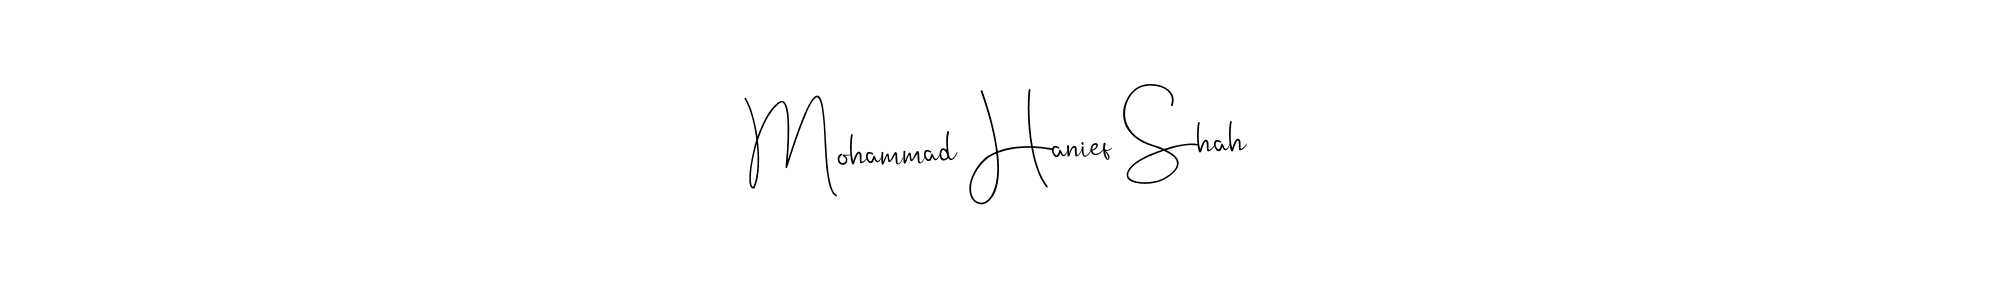 Mohammad Hanief Shah